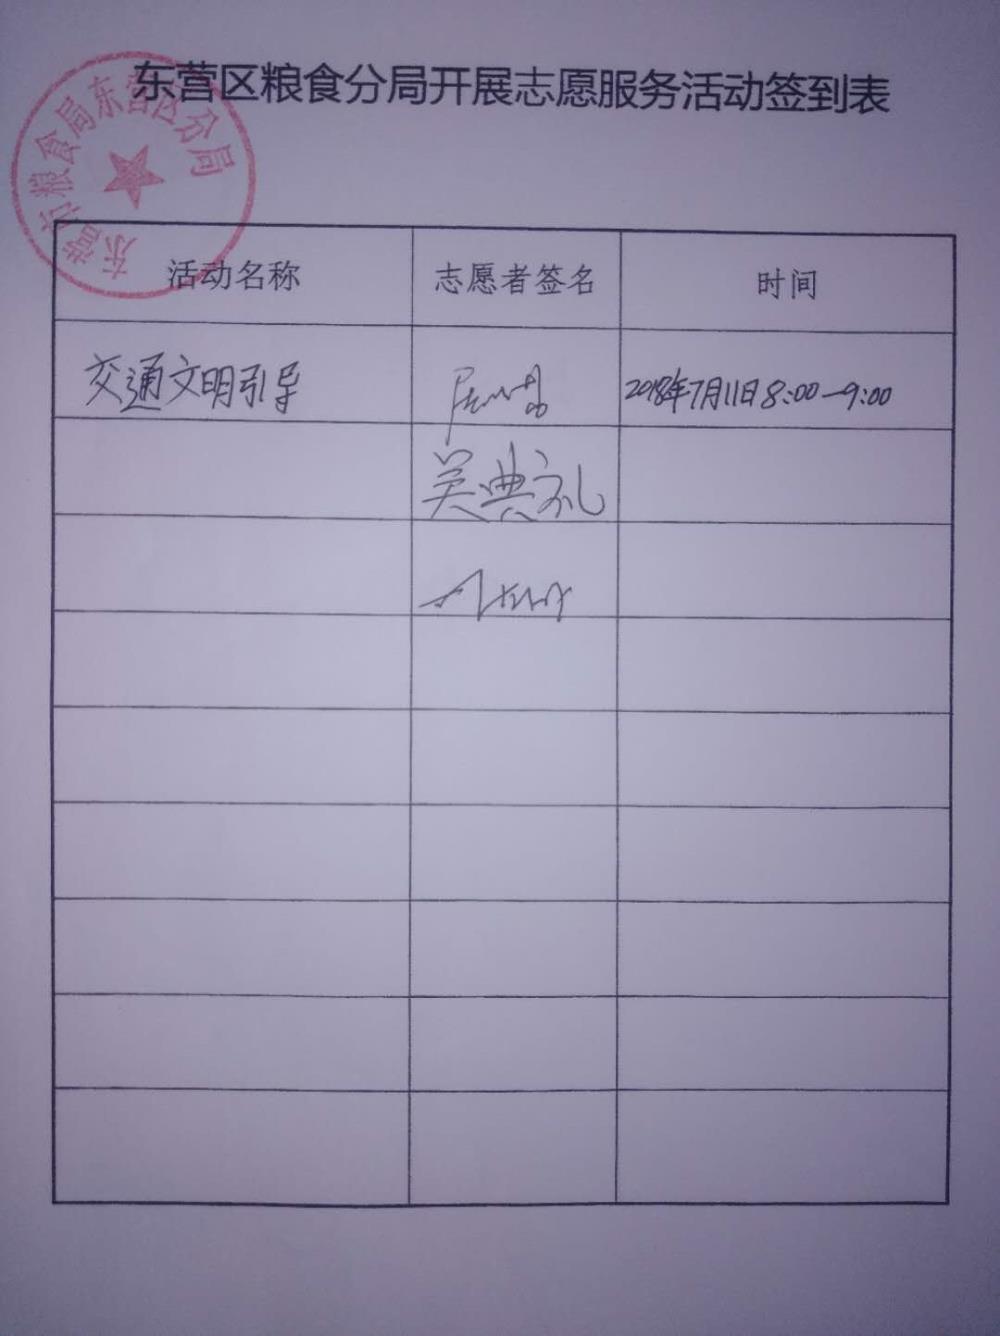 东营区粮食分局开展志愿服务活动签到表
东营市粮食局东营区分局
活动名称 志愿者签名 时间
交通文明引导 2018年7月11日8:00—9:00
吴典礼